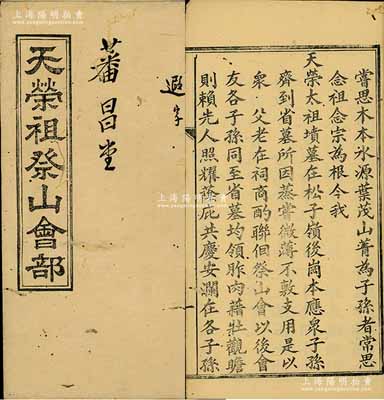 上海陽明拍賣
天榮祖祭山會部
蕃昌堂
遐字
嘗思木本水源葉茂山菁為子孫者常思
念祖念宗為根今我
天榮太祖墳墓在松子嶺後崗本應眾子孫
齊到省墓所因蒸嘗微薄不敷支用是以
衆 父老在祠商酌聯個祭山會以後會
友各子孫同至省墓均領胙肉藉壯觀瞻
則賴先人照耀蔭庇共慶安瀾在各子孫
上海陽明拍賣